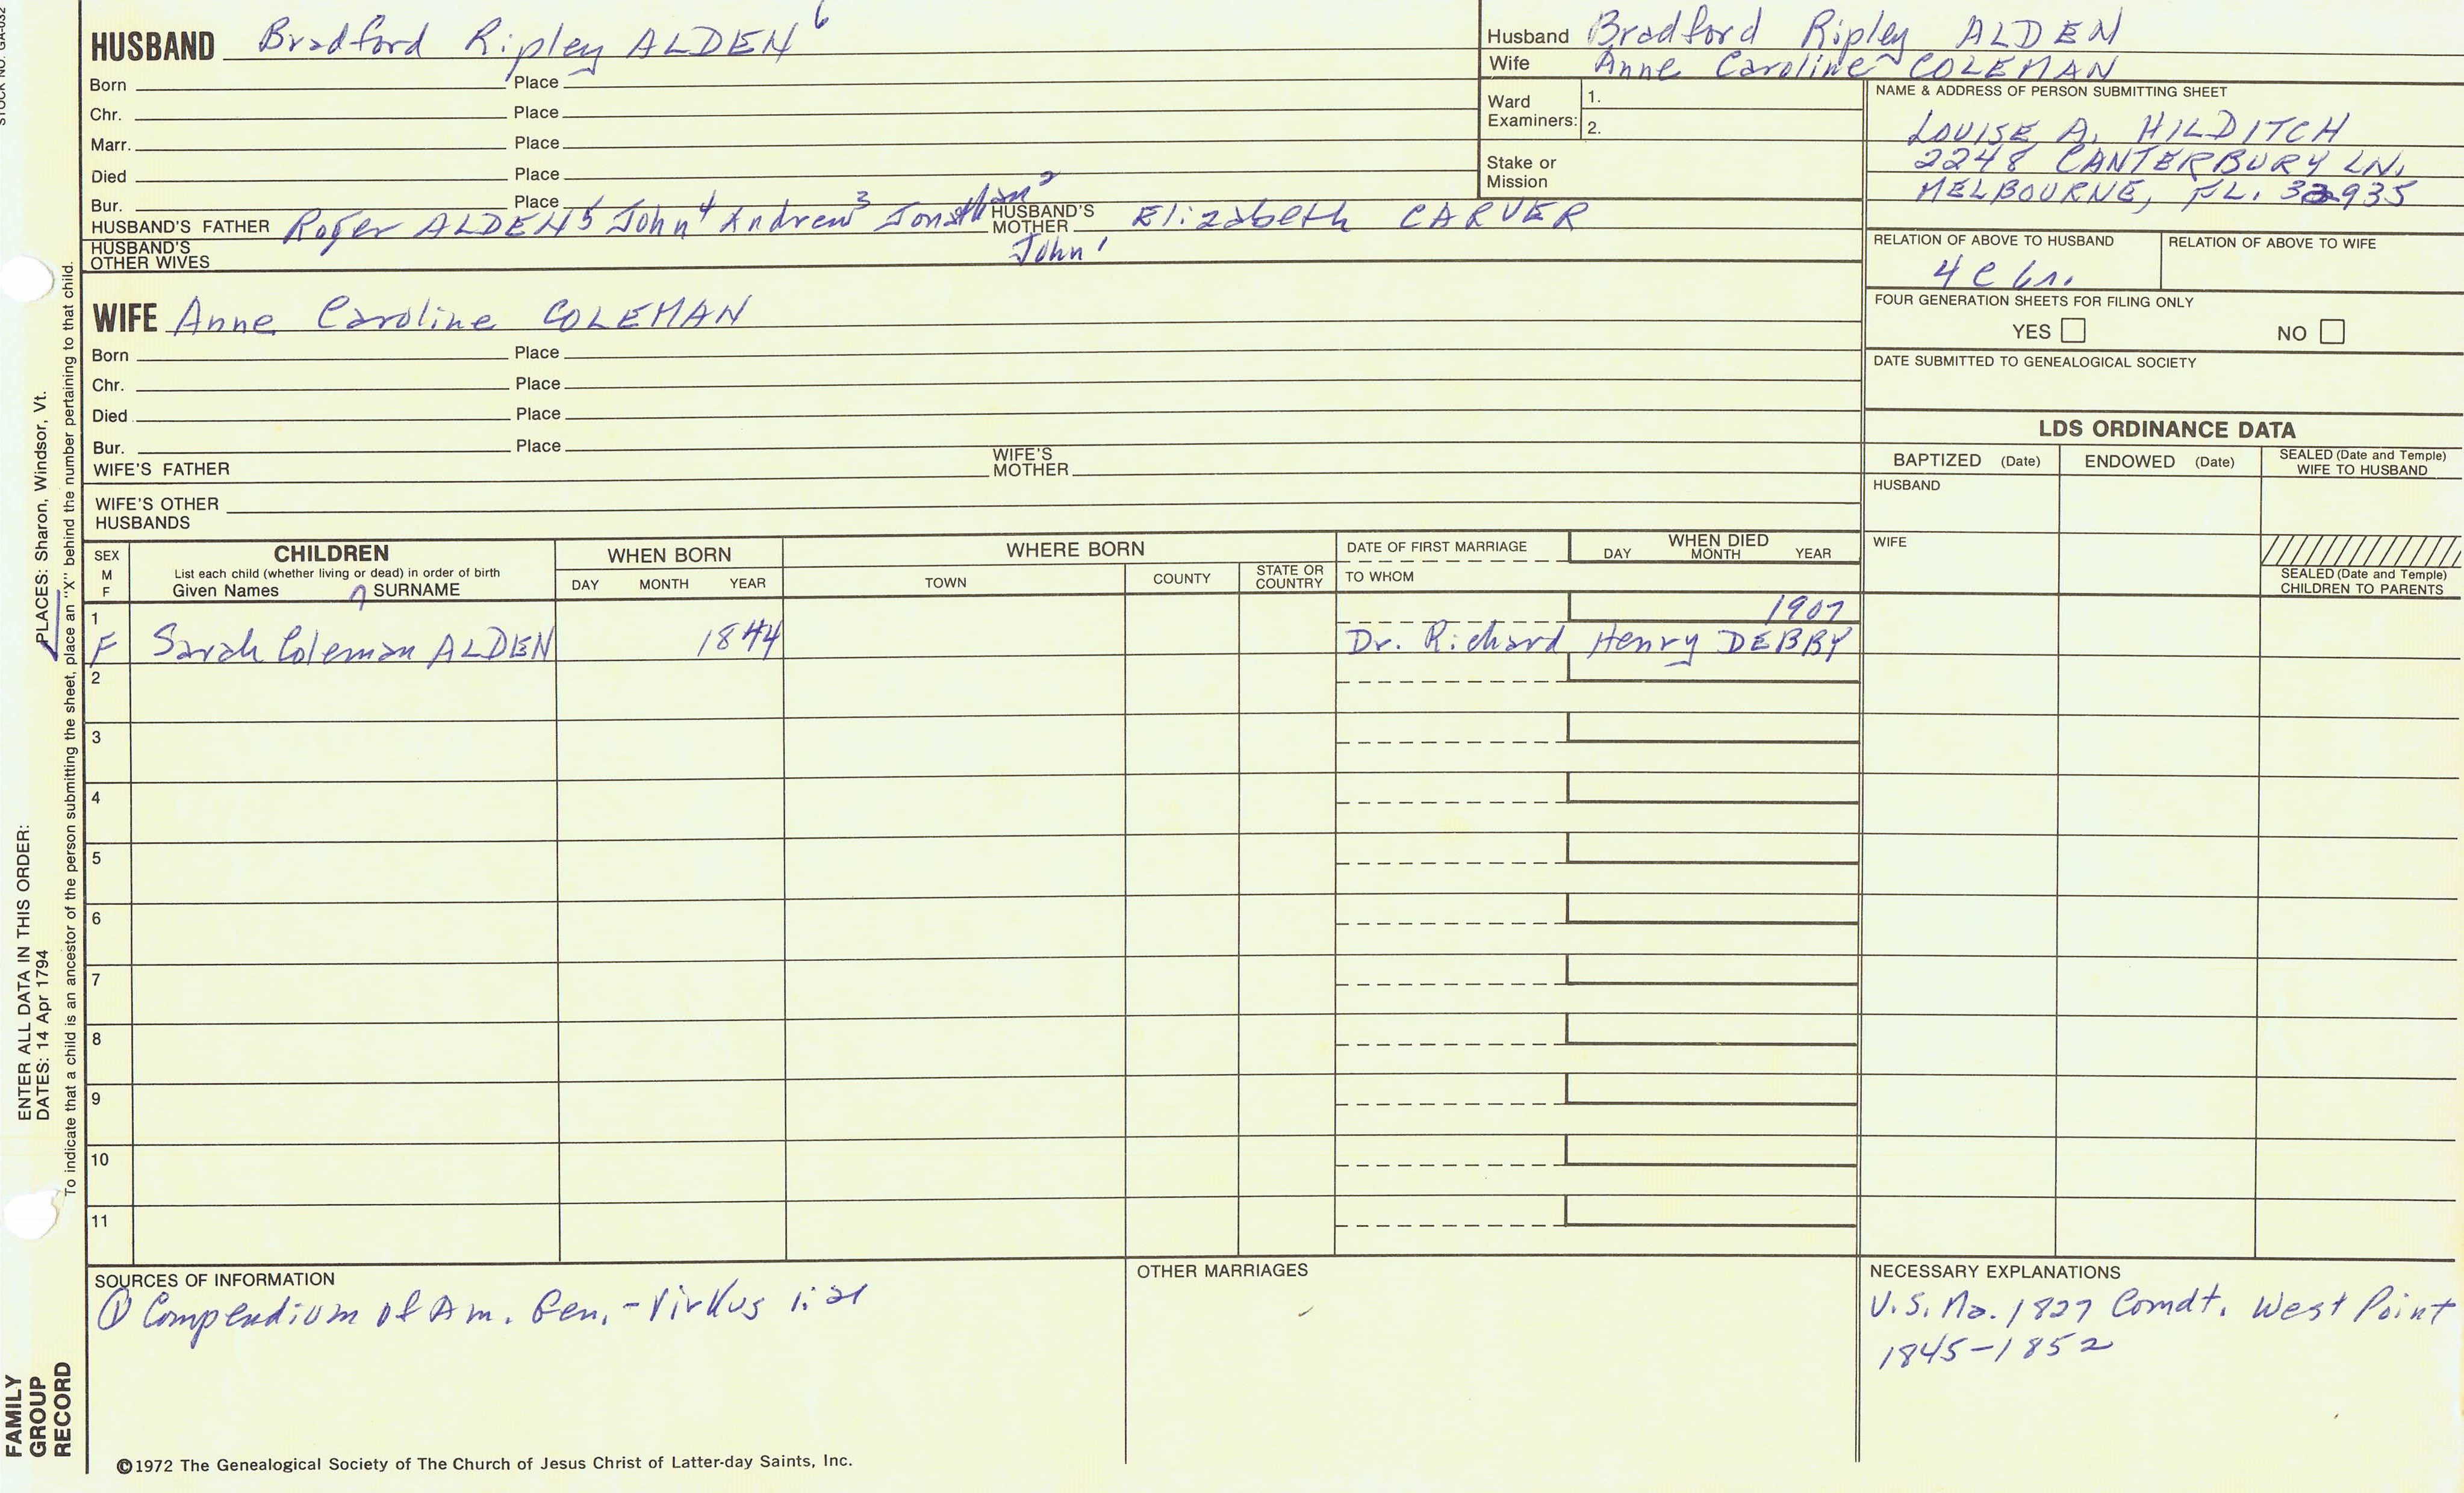 STOCK NO. GA-032
HUSBAND Bradford Ripley ALDEN 6
Born Place
Chr. Place
Marr. Place
Died Place
Bur. Place
HUSBAND'S FATHER Roger ALDEN 5 John 4 Andrew 3 Jonathan 2 John 1 HUSBAND'S MOTHER Elizabeth CARVER
HUSBAND'S OTHER WIVES
Husband Bradford Ripley ALDEN
Wife Anne Caroline COLEMAN
Ward Examiners: 1.
2.
Stake or Mission
NAME & ADDRESS OF PERSON SUBMITTING SHEET
LOUISE A. HILDITCH
2248 CANTERBURY LN.
MELBOURNE, FL. 32935
RELATION OF ABOVE TO HUSBAND RELATION OF ABOVE TO WIFE
4 C
FOUR GENERATION SHEETS FOR FILING ONLY
YES NO
DATE SUBMITTED TO GENEALOGICAL SOCIETY
WIFE Anne Caroline COLEMAN
Born Place
Chr. Place
Died Place
Bur. Place
WIFE'S FATHER WIFE'S MOTHER
WIFE'S OTHER HUSBANDS
LDS ORDINANCE DATA
BAPTIZED (Date) ENDOWED (Date) SEALED (Date and Temple) WIFE TO HUSBAND
HUSBAND
WIFE
SEALED (Date and Temple) CHILDREN TO PARENTS
SEX M F CHILDREN WHEN BORN WHERE BORN DATE OF FIRST MARRIAGE WHEN DIED
List each child (whether living or dead) in order of birth
Given Names SURNAME DAY MONTH YEAR TOWN COUNTY STATE OR COUNTRY TO WHOM DAY MONTH YEAR
1 1907
F Sarah Coleman ALDEN 1844 Dr. Richard Henry DEBBY
2
3
4
5
6
7
8
9
10
11
SOURCES OF INFORMATION
① Compendium of Am. Gen. - Virkus 1:21
OTHER MARRIAGES
NECESSARY EXPLANATIONS
U.S. Ma. 1827 Comdt. West Point
1845-1852
©1972 The Genealogical Society of The Church of Jesus Christ of Latter-day Saints, Inc.
FAMILY GROUP RECORD
ENTER ALL DATA IN THIS ORDER:
DATES: 14 Apr 1794 PLACES: Sharon, Windsor, Vt.
To indicate that a child is an ancestor of the person submitting the sheet, place an "X" behind the number pertaining to that child.